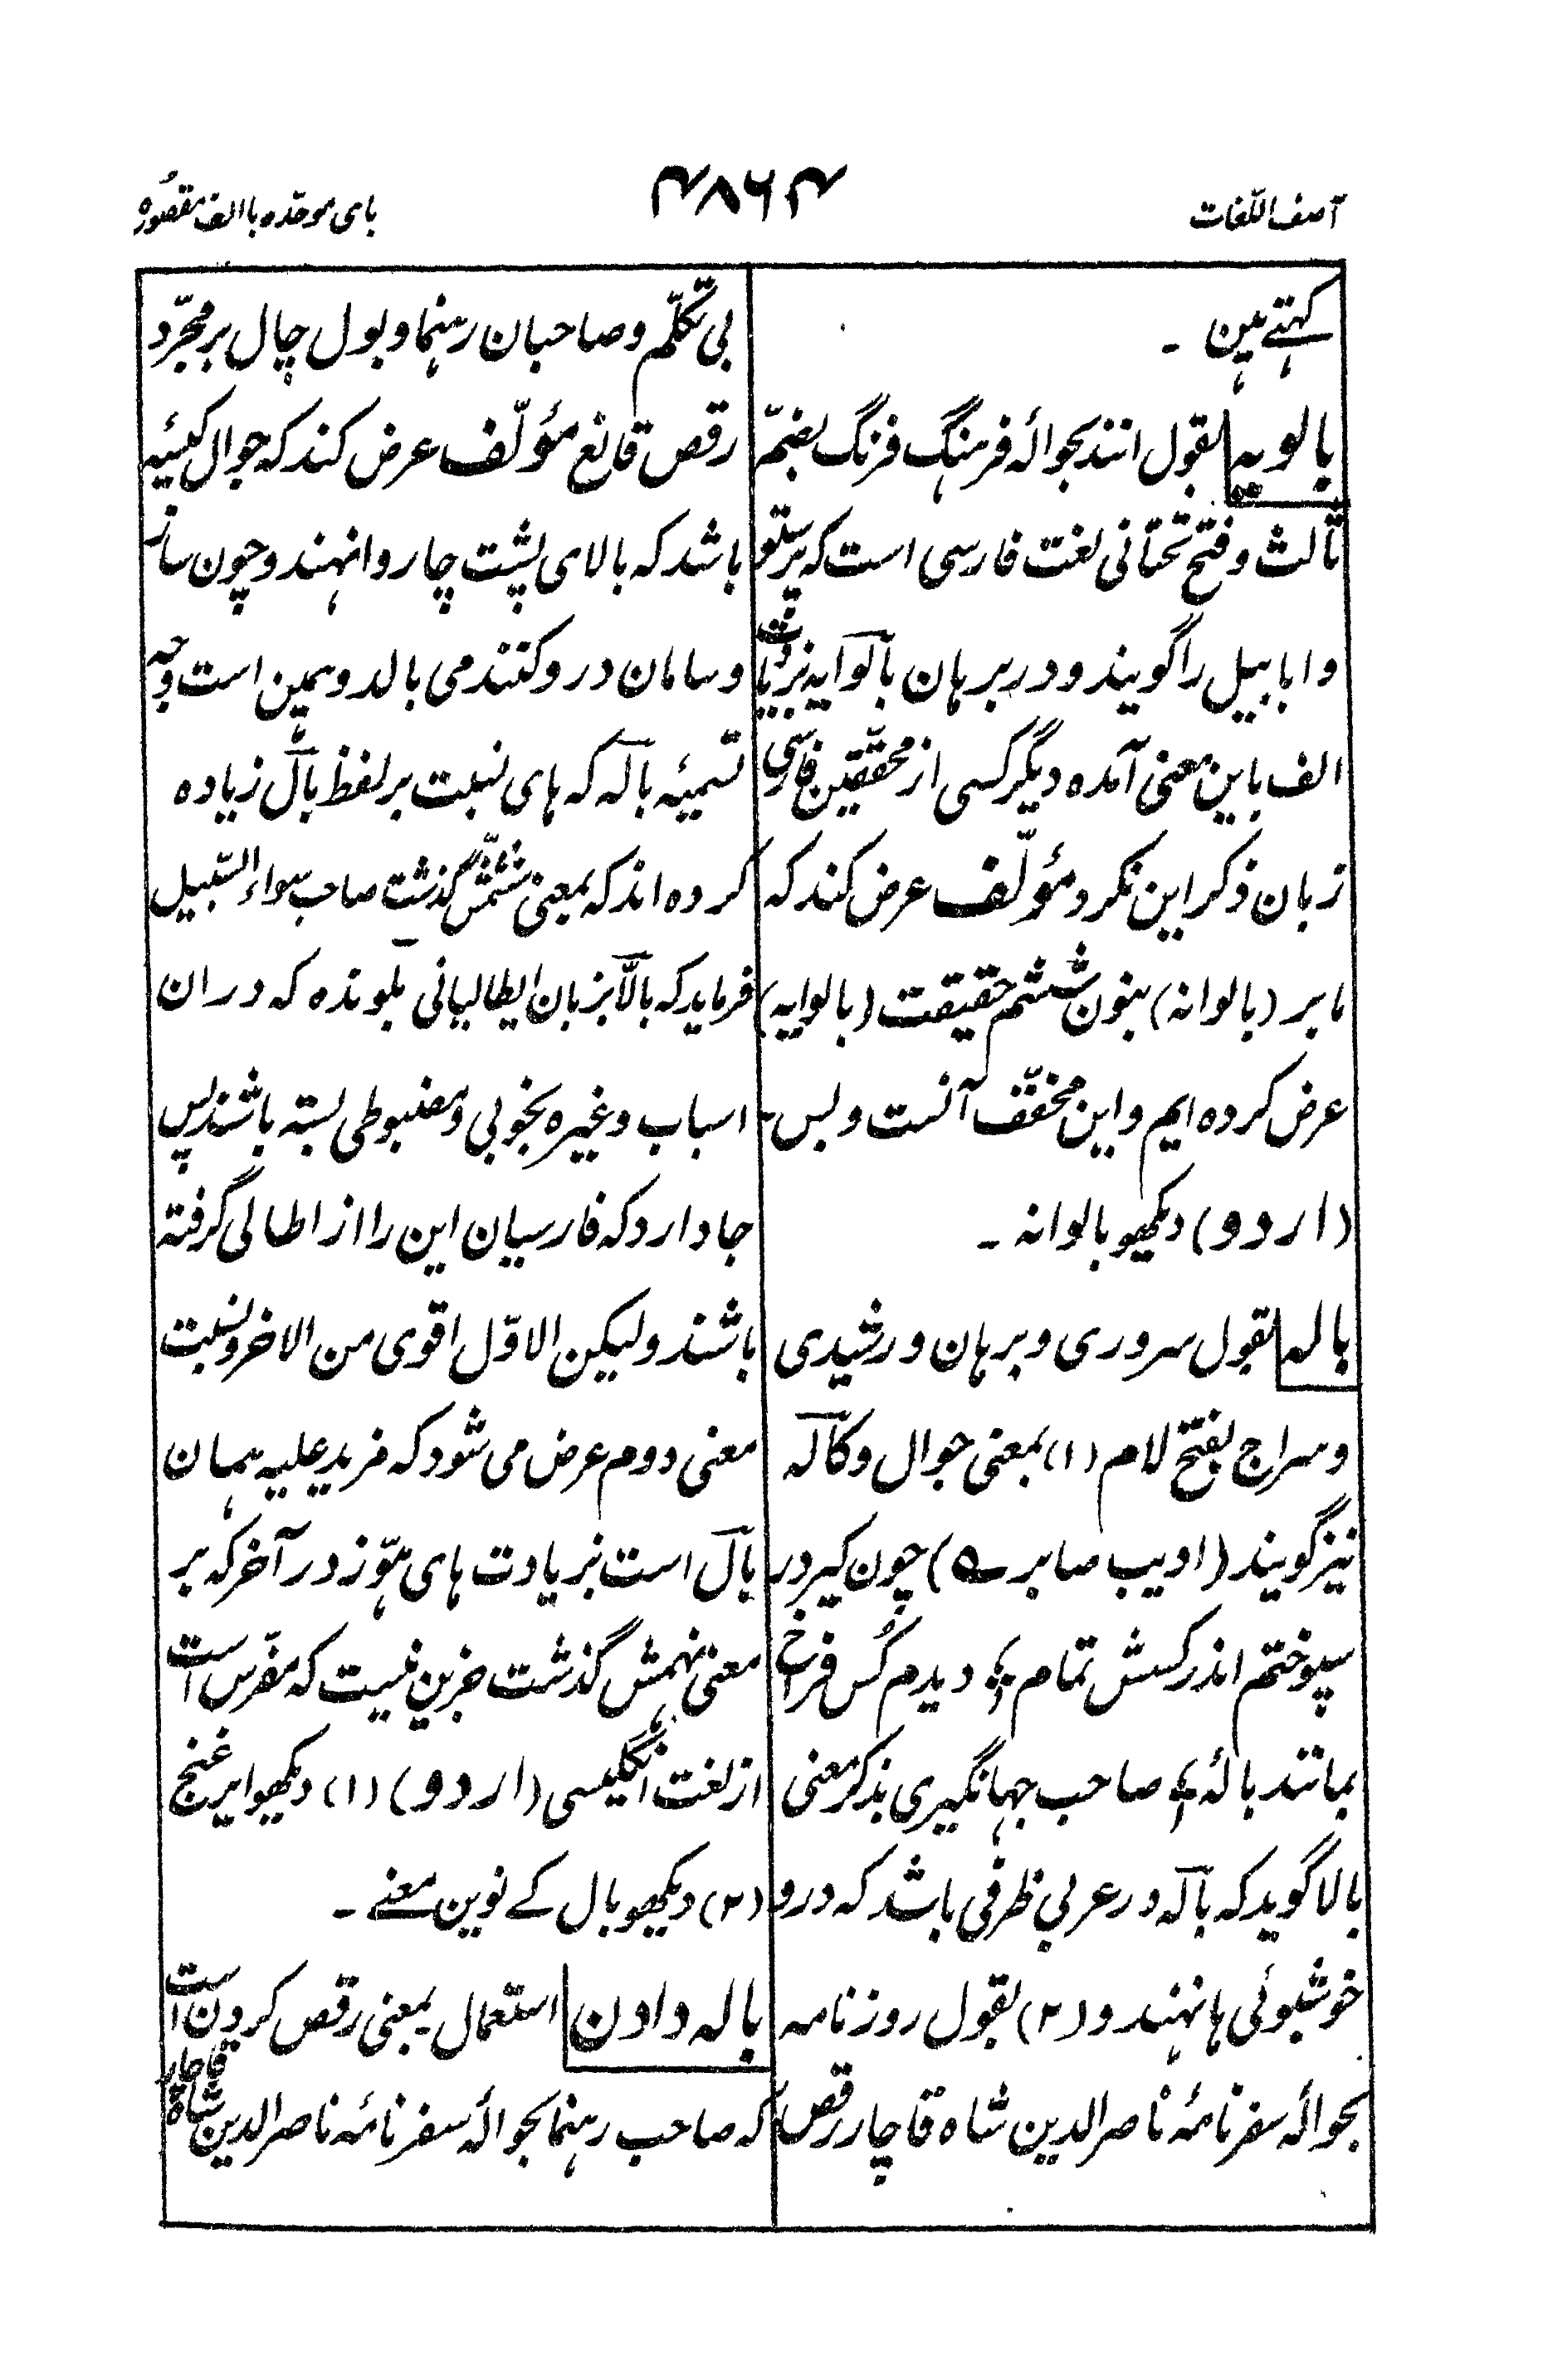 آصف اللّغات
۴۸۶۴
بای موحّده با الف مقصوره
کہتے ہین ۔
بالویه بقول انند بحوالهٔ فرهنگ فرنگ بضمّ
ثالث و فتح تحتانی لغت فارسی است که پرستو
و ابابیل را گویند و در برهان بالوایه بزیادت
الف باین معنی آمده دیگر کسی از محقّقین فارسی
زبان ذکر این نکرد مؤلّف عرض کند که
ما بر (بالوانه) بنون ششم حقیقت (بالوایه)
عرض کرده ایم و این مخفّف آنست و بس ۔
(اردو) دیکھو بالوانه ۔
باله بقول سروری و برهان و رشیدی
و سراج بفتح لام (۱) بمعنی جوال و کاله
نیز گویند (ادیب صابر ے) چون کیر در
سپوختم اندر کسش تمام ؛ دیدم کُس فراخ
بمانند بالهٔ ؛ صاحب جهانگیری بذکر معنی
بالا گوید که باله در عربی ظرفی باشد که درو
خوشبوئی ها نهند و (۲) بقول روزنامه
بحوالهٔ سفرنامهٔ ناصر الدین شاه قاچار رقص
بی تکلّم و صاحبان رهنما و بول چال بر مجرّد
رقص قانع مؤلّف عرض کند که جوال کیسئه
باشد که بالای پشت چاروا نهند و چون ساز
و سامان درو کنند می بالد و همین است وجه
تسمیهٔ باله که های نسبت بر لفظ بال زیاده
کرده اند که بمعنی ششمش گذشت صاحب سواء السّبیل
فرماید که بالّا بزبان ایطالیانی بلونده که دران
اسباب وغیره بخوبی و مضبوطی بسته باشند پس
جا دارد که فارسیان این را از اطالی گرفته
باشند ولیکن الاوّل اقوی من الاخر و نسبت
معنی دوم عرض می شود که مزید علیه همان
بال است بزیادت های هوّز در آخر که بر
معنی نهمش گذشت جزین نیست که مفرّس است
از لغت انگلیسی (اردو) (۱) دیکھو ایرغنج
(۲) دیکھو بال کے نوین معنے ۔
باله دادن استعمال بمعنی رقص کردن است
که صاحب رهنما بحوالهٔ سفرنامهٔ ناصر الدین شاه قاچار